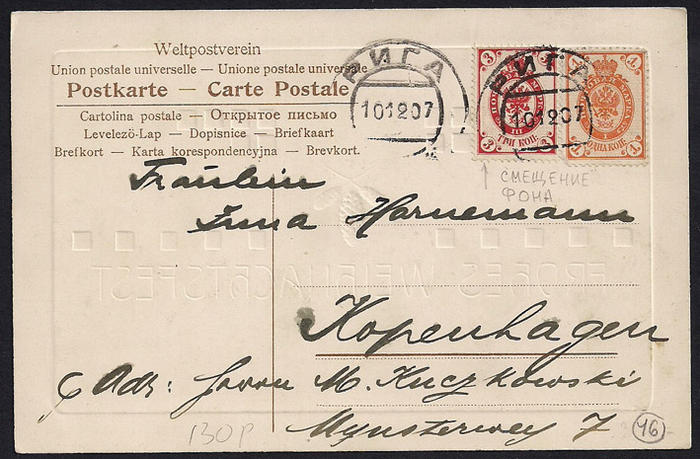 Weltpostverein
Union postale universelle — Unione postale universale
Postkarte — Carte Postale
Cartolina postale — Открытое письмо
Levelezö-Lap — Dopisnice — Briefkaart
Brefkort — Karta korespondencyjna — Brevkort.
РИГА
10 12 07
РИГА
10 12 07
3 3
ТРИ КОП.
3 3
1 1
ОДНА КОП.
1 1
СМЕЩЕНИЕ
ФОНА
Fräulein
Irma Hornemann
FROHES WEIHNACHTSFEST
Kopenhagen
Adr: Herrn M. Kuczkowski
Mynstersvej 7
130 Р
46